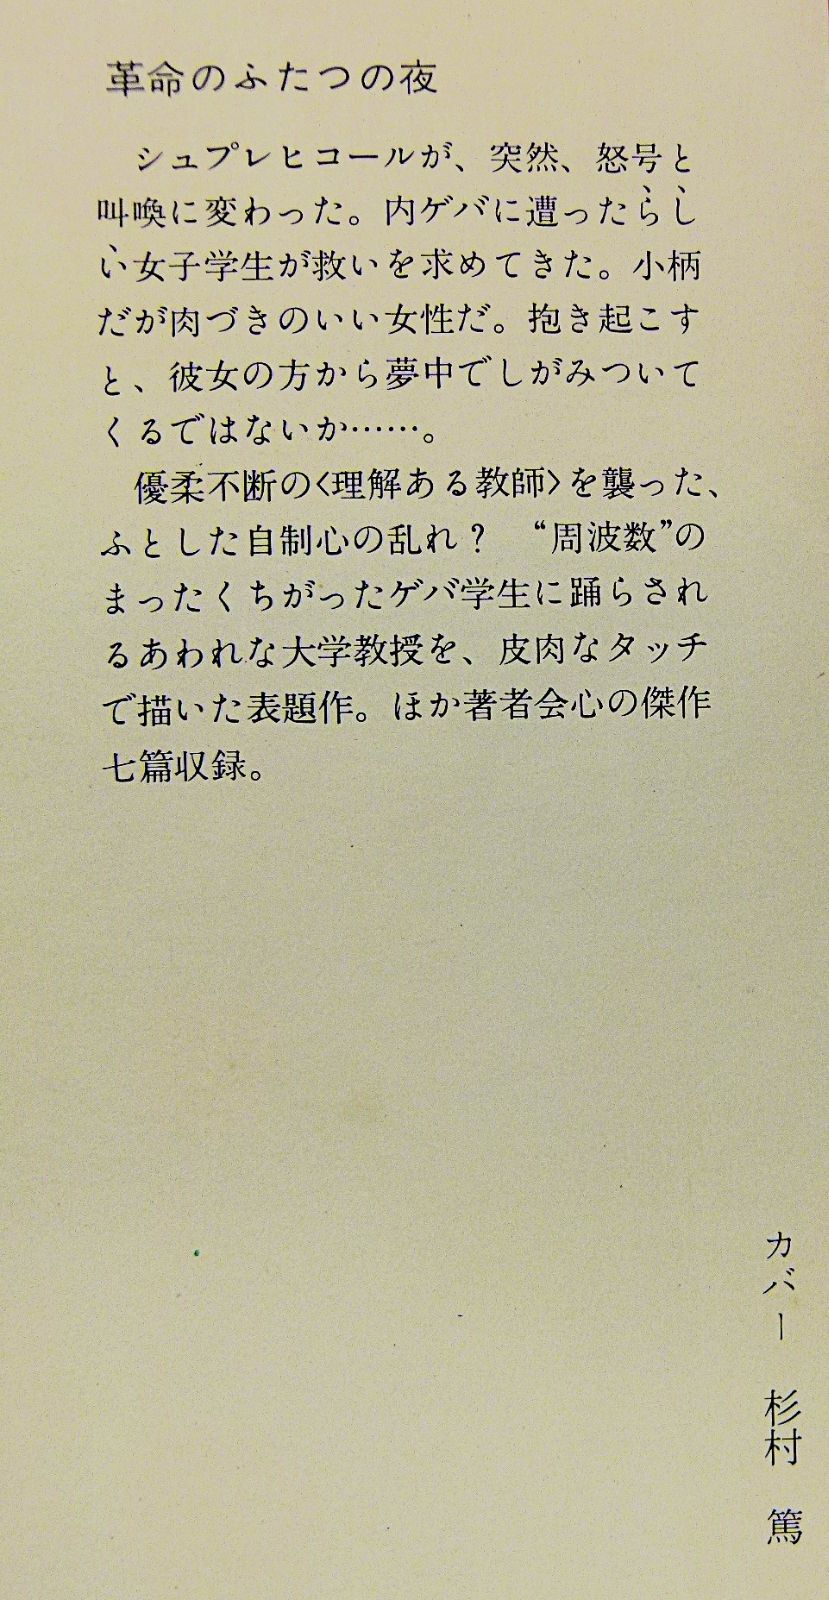 革命のふたつの夜
シュプレヒコールが、突然、怒号と
叫喚に変わった。内ゲバに遭ったらし
い女子学生が救いを求めてきた。小柄
だが肉づきのいい女性だ。抱き起こす
と、彼女の方から夢中でしがみついて
くるではないか……。
優柔不断の〈理解ある教師〉を襲った、
ふとした自制心の乱れ？　“周波数”の
まったくちがったゲバ学生に踊らされ
るあわれな大学教授を、皮肉なタッチ
で描いた表題作。ほか著者会心の傑作
七篇収録。
カバー　杉村　篤